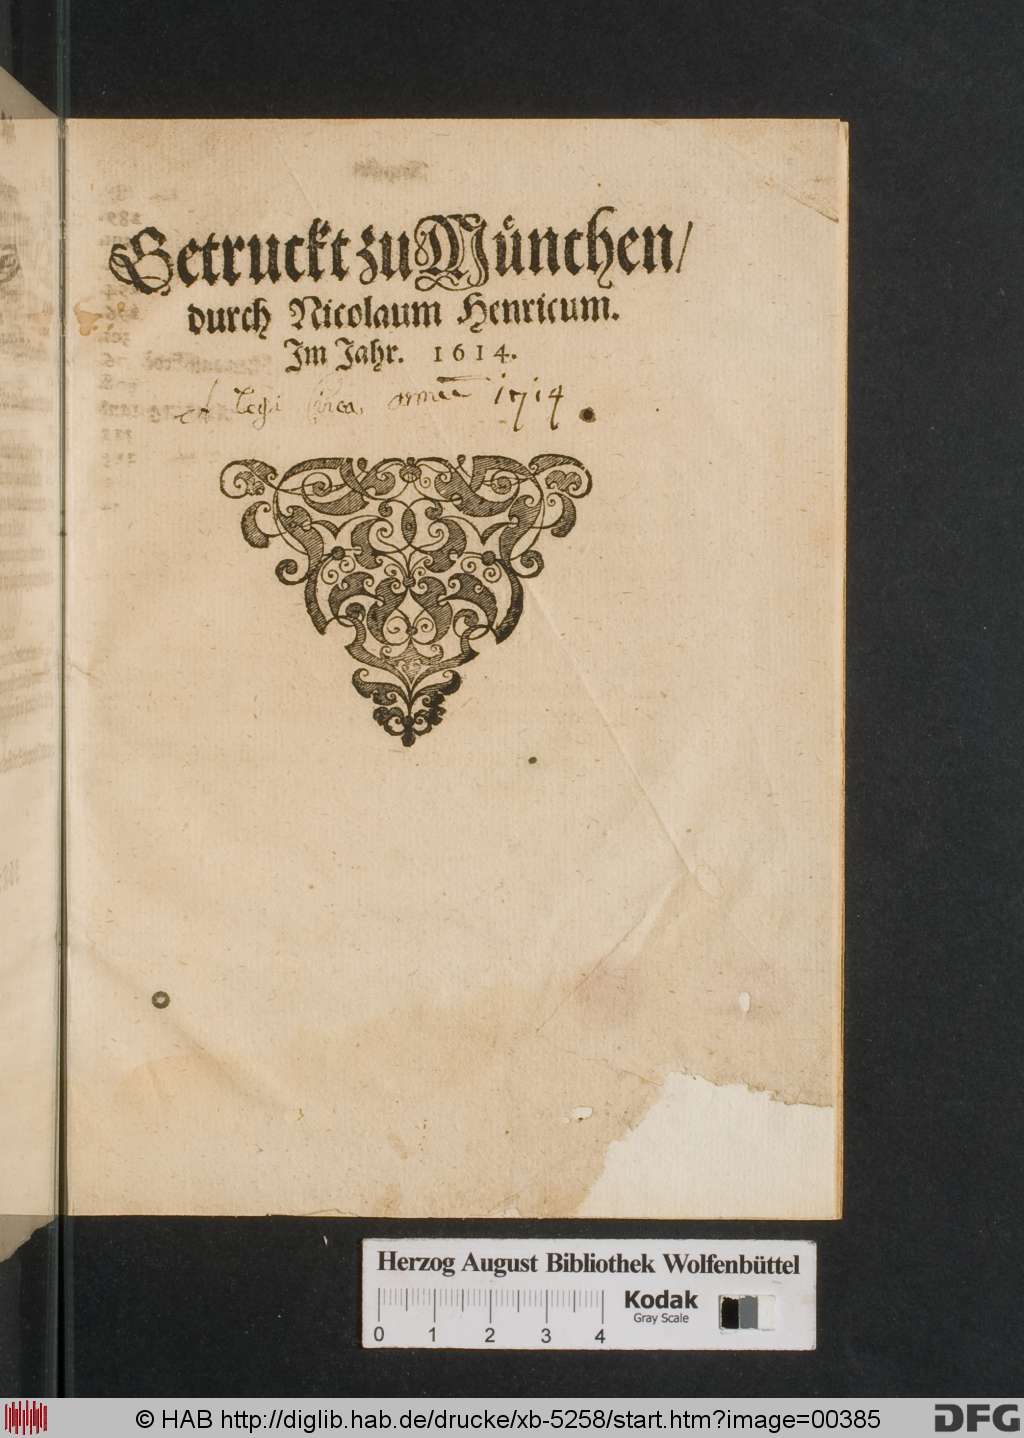 Getruckt zu München/
durch Nicolaum Henricum.
Im Jahr. 1614.
et legi circa, annum 1714
Herzog August Bibliothek Wolfenbüttel
0 1 2 3 4
Kodak
Gray Scale
© HAB http://diglib.hab.de/drucke/xb-5258/start.htm?image=00385
DFG